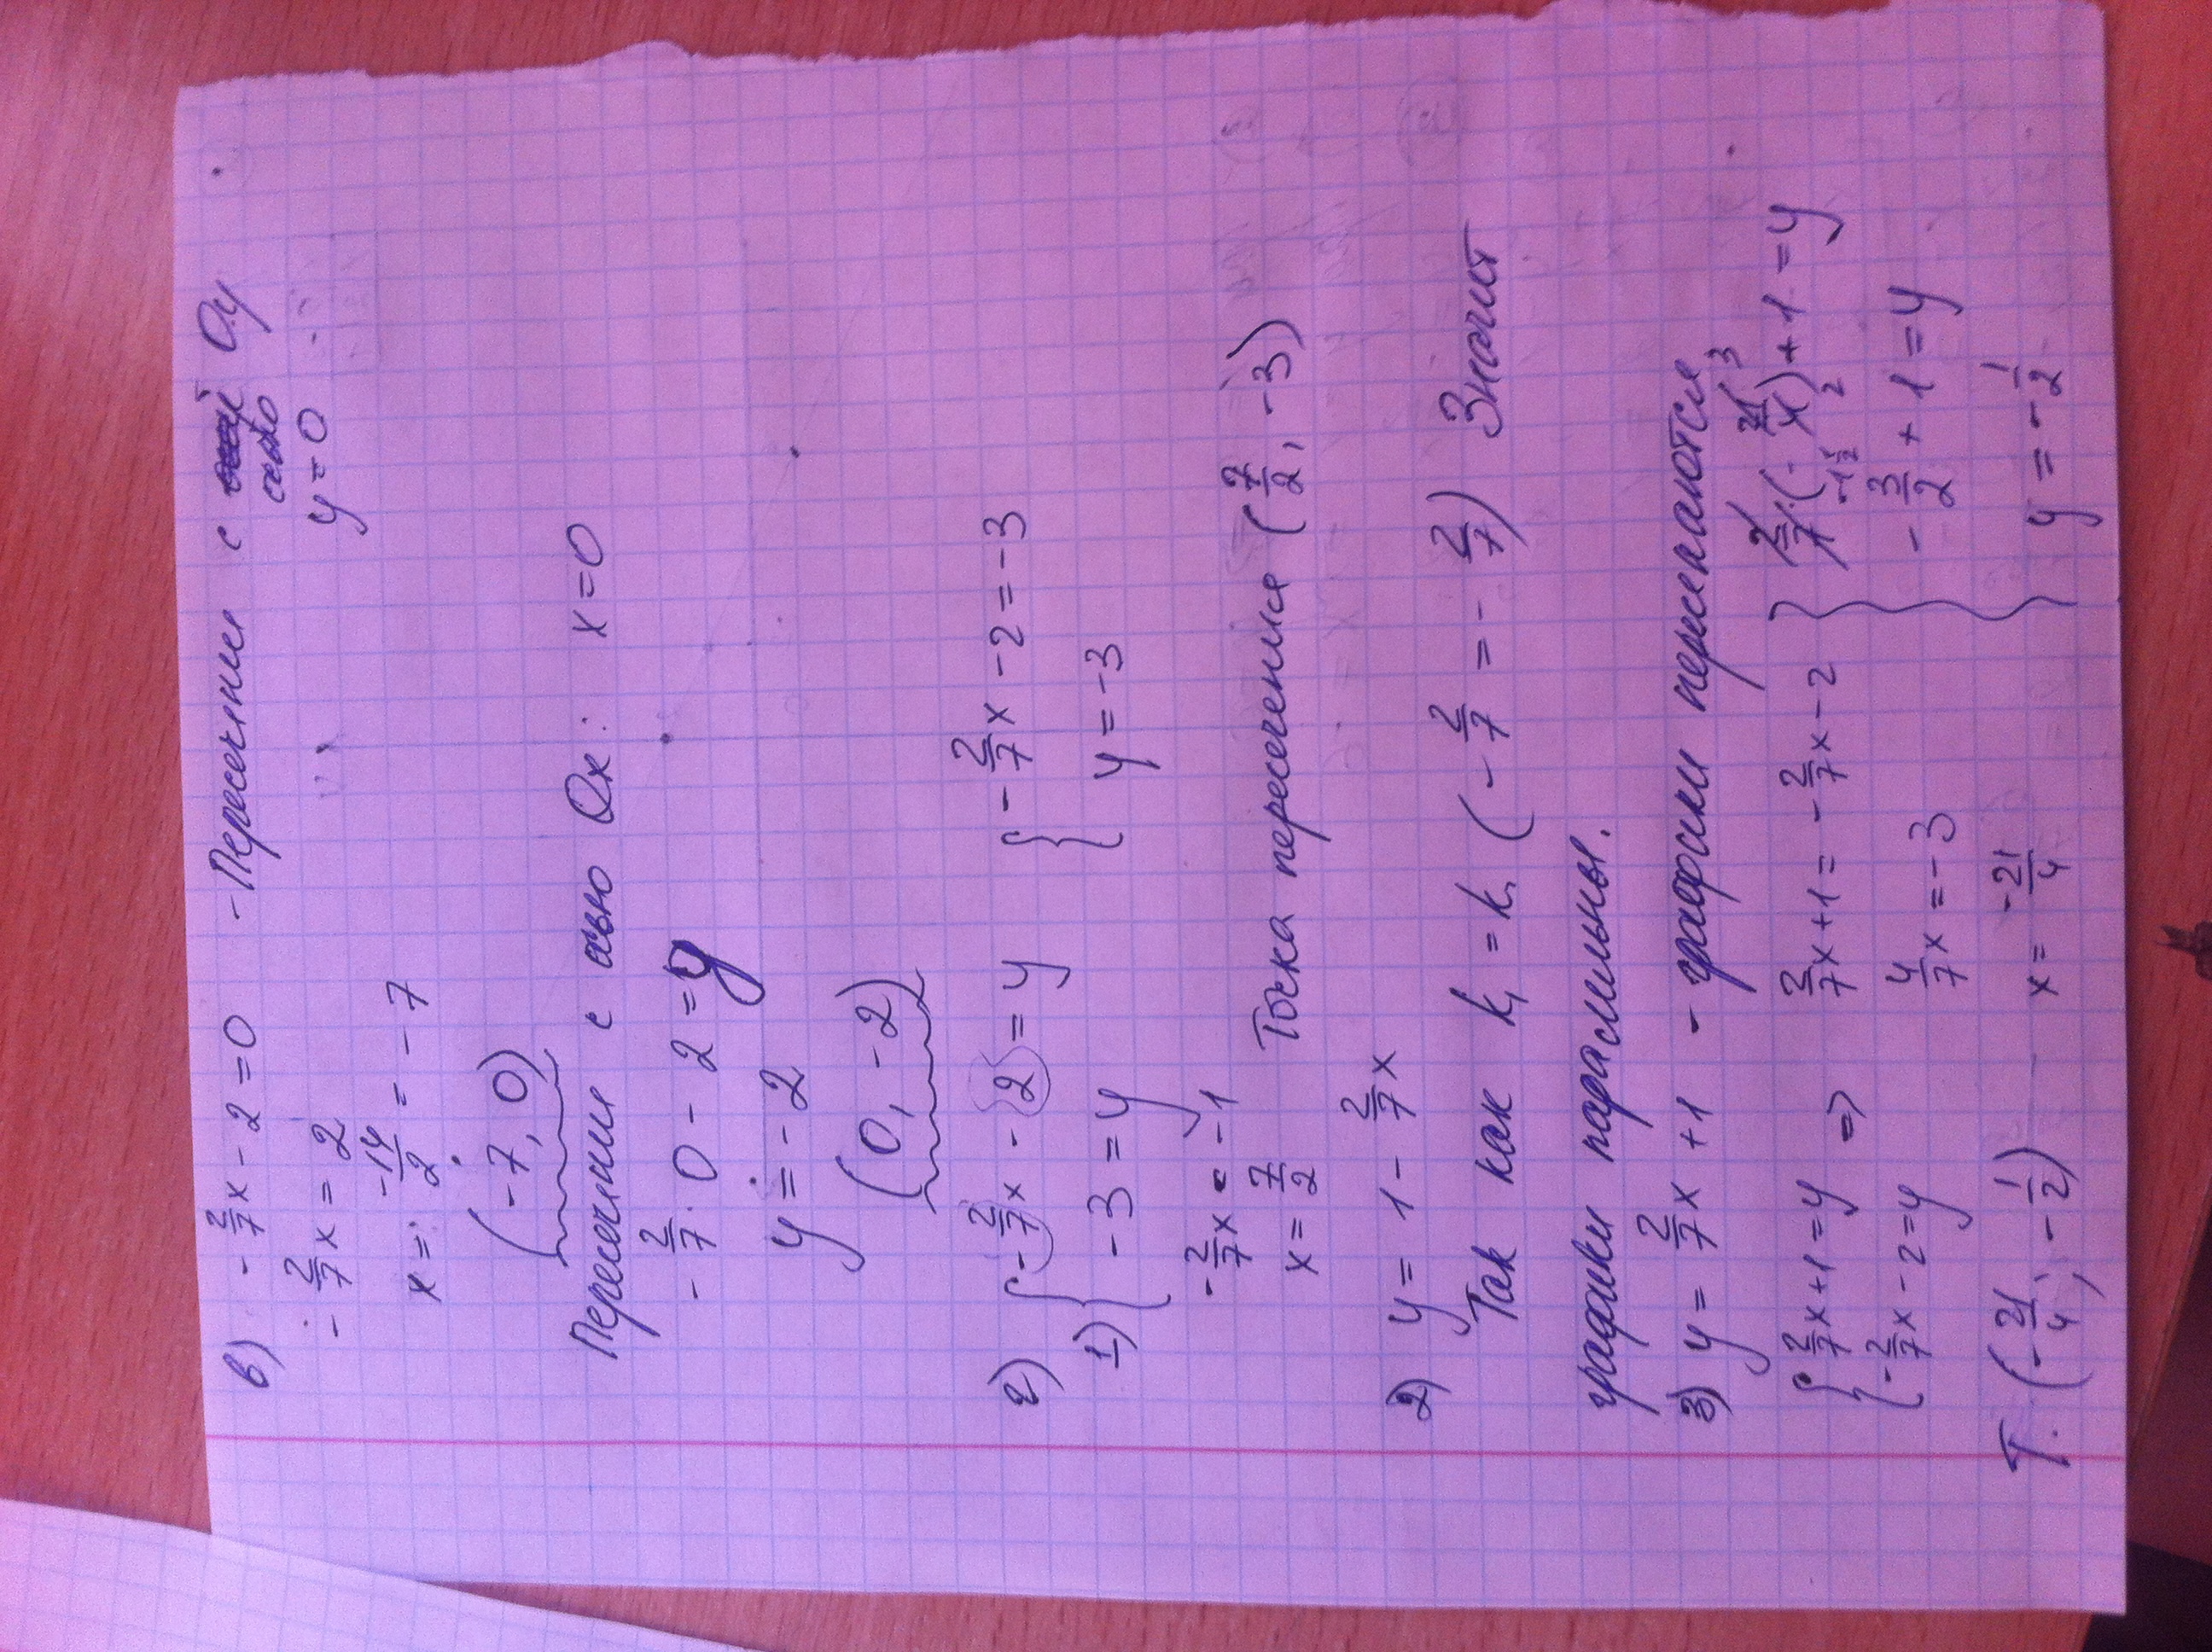 в) -2/7x - 2 = 0 - Пересечении с осью Оу
-2/7x = 2 y = 0
x = -14/2 = -7
(-7, 0)
Пересечении с осью Ох: x = 0
-2/7 · 0 - 2 = y
y = -2
(0, -2)
г) { -2/7x - 2 = y { -2/7x - 2 = -3
1) -3 = y y = -3
-2/7x = -1
x = 7/2 Точка пересечения (7/2, -3)
2) y = 1 - 2/7x
Так как k₁ = k₁ (-2/7 = -2/7) Значит
графики параллельны.
3) y = 2/7x + 1 - графики пересекаются
{ 2/7x + 1 = y ⇒ 2/7x + 1 = -2/7x - 2 } 2/7 · (-21/4) + 1 = y
-2/7x - 2 = y 4/7x = -3 -3/2 + 1 = y
Т. (-21/4, -1/2) x = -21/4 y = -1/2